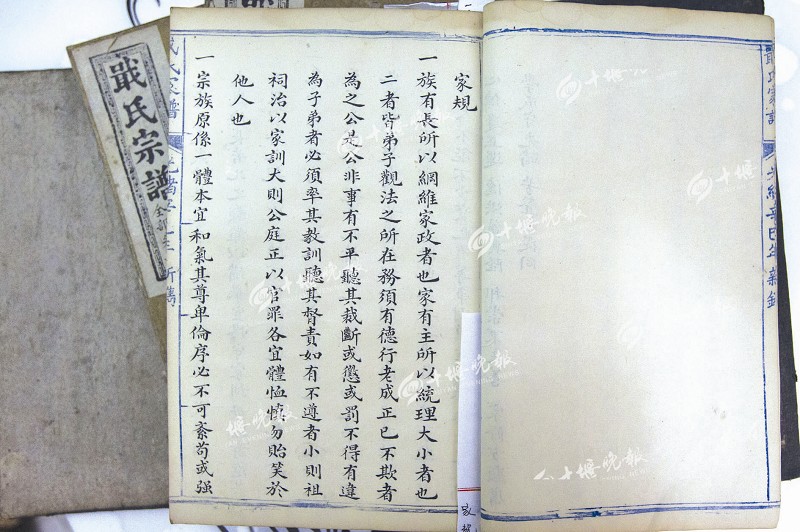 家規
一族有長所以綱維家政者也家有主所以統理大小者也
二者皆弟子觀法之所在務須有德行老成正己不欺者
為之公是公非事有不平聽其裁斷或懲或罰不得有違
為子弟者必須率其教訓聽其督責如有不遵者小則祖
祠治以家訓大則公庭正以官罪各宜體恤慎勿貽笑於
他人也
一宗族原係一體本宜和氣其尊卑倫序必不可紊苟或强
戢氏家譜
光緒辛巳年新鐫
戢氏宗譜
全部
十堰晚报